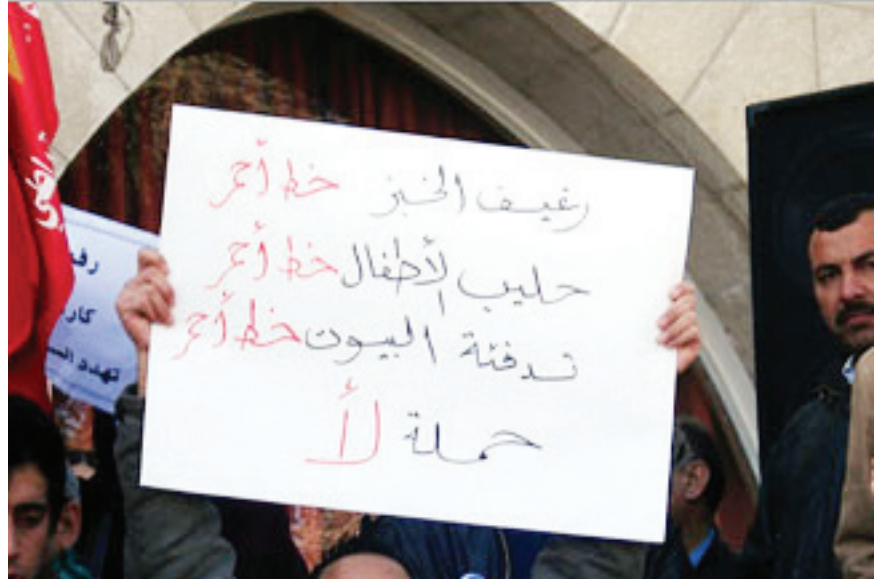 رغيف الخبز خط أحمر
حليب الأطفال خط أحمر
تدفئة البيوت خط أحمر
حملة لأ
رفع
كار
تهدد